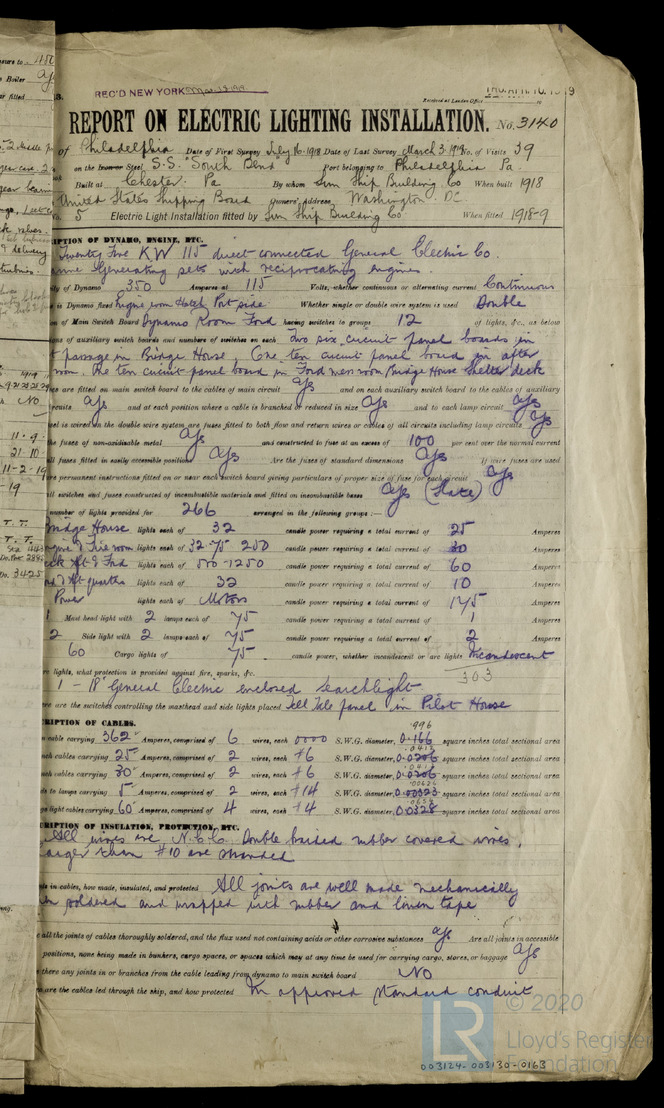 REC'D NEW YORK
Received at London Office
REPORT ON ELECTRIC LIGHTING INSTALLATION. No. 3140
of Philadelphia Date of First Survey July 16-1918 Date of Last Survey March 3. 1919 No. of Visits 39
on the Iron or Steel S.S. "South Bend" Port belonging to Philadelphia Pa.
Built at Chester. Pa By whom Sun Ship Building Co When built 1918
United States Shipping Board Owners' Address Washington, DC.
5 Electric Light Installation fitted by Sun Ship Building Co When fitted 1918-9
IPTION OF DYNAMO, ENGINE, ETC.
Twenty Five KW 115 direct connected General Electric Co.
Generating sets with reciprocating engines.
ity of Dynamo 350 Amperes at 115 Volts, whether continuous or alternating current Continuous
is Dynamo fixed Engine room Hatch Port side Whether single or double wire system is used Double
on of Main Switch Board Dynamo Room Ford having switches to groups 12 of lights, &c., as below
ons of auxiliary switch boards and numbers of switches on each Two six circuit panel boards in
passage in Bridge House, One ten circuit panel board in after
room. One ten circuit panel board in Ford mess room Bridge House shelter deck
es are fitted on main switch board to the cables of main circuit Yes and on each auxiliary switch board to the cables of auxiliary
rcuits Yes and at each position where a cable is branched or reduced in size Yes and to each lamp circuit Yes
sel is wired on the double wire system are fuses fitted to both flow and return wires or cables of all circuits including lamp circuits Yes
the fuses of non-oxidizable metal Yes and constructed to fuse at an excess of 100 per cent over the normal current
all fuses fitted in easily accessible positions Yes Are the fuses of standard dimensions Yes If wire fuses are used
are permanent instructions fitted on or near each switch board giving particulars of proper size of fuse for each circuit Yes
all switches and fuses constructed of incombustible materials and fitted on incombustible bases Yes (Slate)
number of lights provided for 266 arranged in the following groups :—
Bridge House lights each of 32 candle power requiring a total current of 25 Amperes
Engine & Fire room lights each of 32-75 250 candle power requiring a total current of 30 Amperes
Deck Aft & Ford lights each of 500-1250 candle power requiring a total current of 60 Amperes
Aft quarters lights each of 32 candle power requiring a total current of 10 Amperes
Power lights each of Motors candle power requiring a total current of 175 Amperes
1 Mast head light with 2 lamps each of 75 candle power requiring a total current of 1 Amperes
2 Side light with 2 lamps each of 75 candle power requiring a total current of 2 Amperes
60 Cargo lights of 75 candle power, whether incandescent or arc lights Incandescent
303
re lights, what protection is provided against fire, sparks, &c.
1 - 18" General Electric enclosed searchlight
ere are the switches controlling the masthead and side lights placed Tell Tale panel in Pilot House
CRIPTION OF CABLES.
n cable carrying 362 Amperes, comprised of 6 wires, each 0000 S.W.G. diameter, .996 0.166 square inches total sectional area
nch cables carrying 25 Amperes, comprised of 2 wires, each #6 S.W.G. diameter, 0.0206 square inches total sectional area
nch cables carrying 30 Amperes, comprised of 2 wires, each #6 S.W.G. diameter, 0.0206 square inches total sectional area
ds to lamps carrying 5 Amperes, comprised of 2 wires, each #14 S.W.G. diameter, 0.00323 square inches total sectional area
go light cables carrying 60 Amperes, comprised of 4 wires, each #4 S.W.G. diameter, 0.0328 square inches total sectional area
CRIPTION OF INSULATION, PROTECTION, ETC.
All wires are N.E.C. Double braided rubber covered wires,
larger than #10 are stranded
ts in cables, how made, insulated, and protected All joints are well made mechanically
soldered and wrapped with rubber and linen tape
e all the joints of cables thoroughly soldered, and the flux used not containing acids or other corrosive substances Yes Are all joints in accessible
positions, none being made in bunkers, cargo spaces, or spaces which may at any time be used for carrying cargo, stores, or baggage Yes
there any joints in or branches from the cable leading from dynamo to main switch board No
ow are the cables led through the ship, and how protected In approved standard conduit
© 2020
LR
Lloyd's Register
Foundation
003124-003130-0163